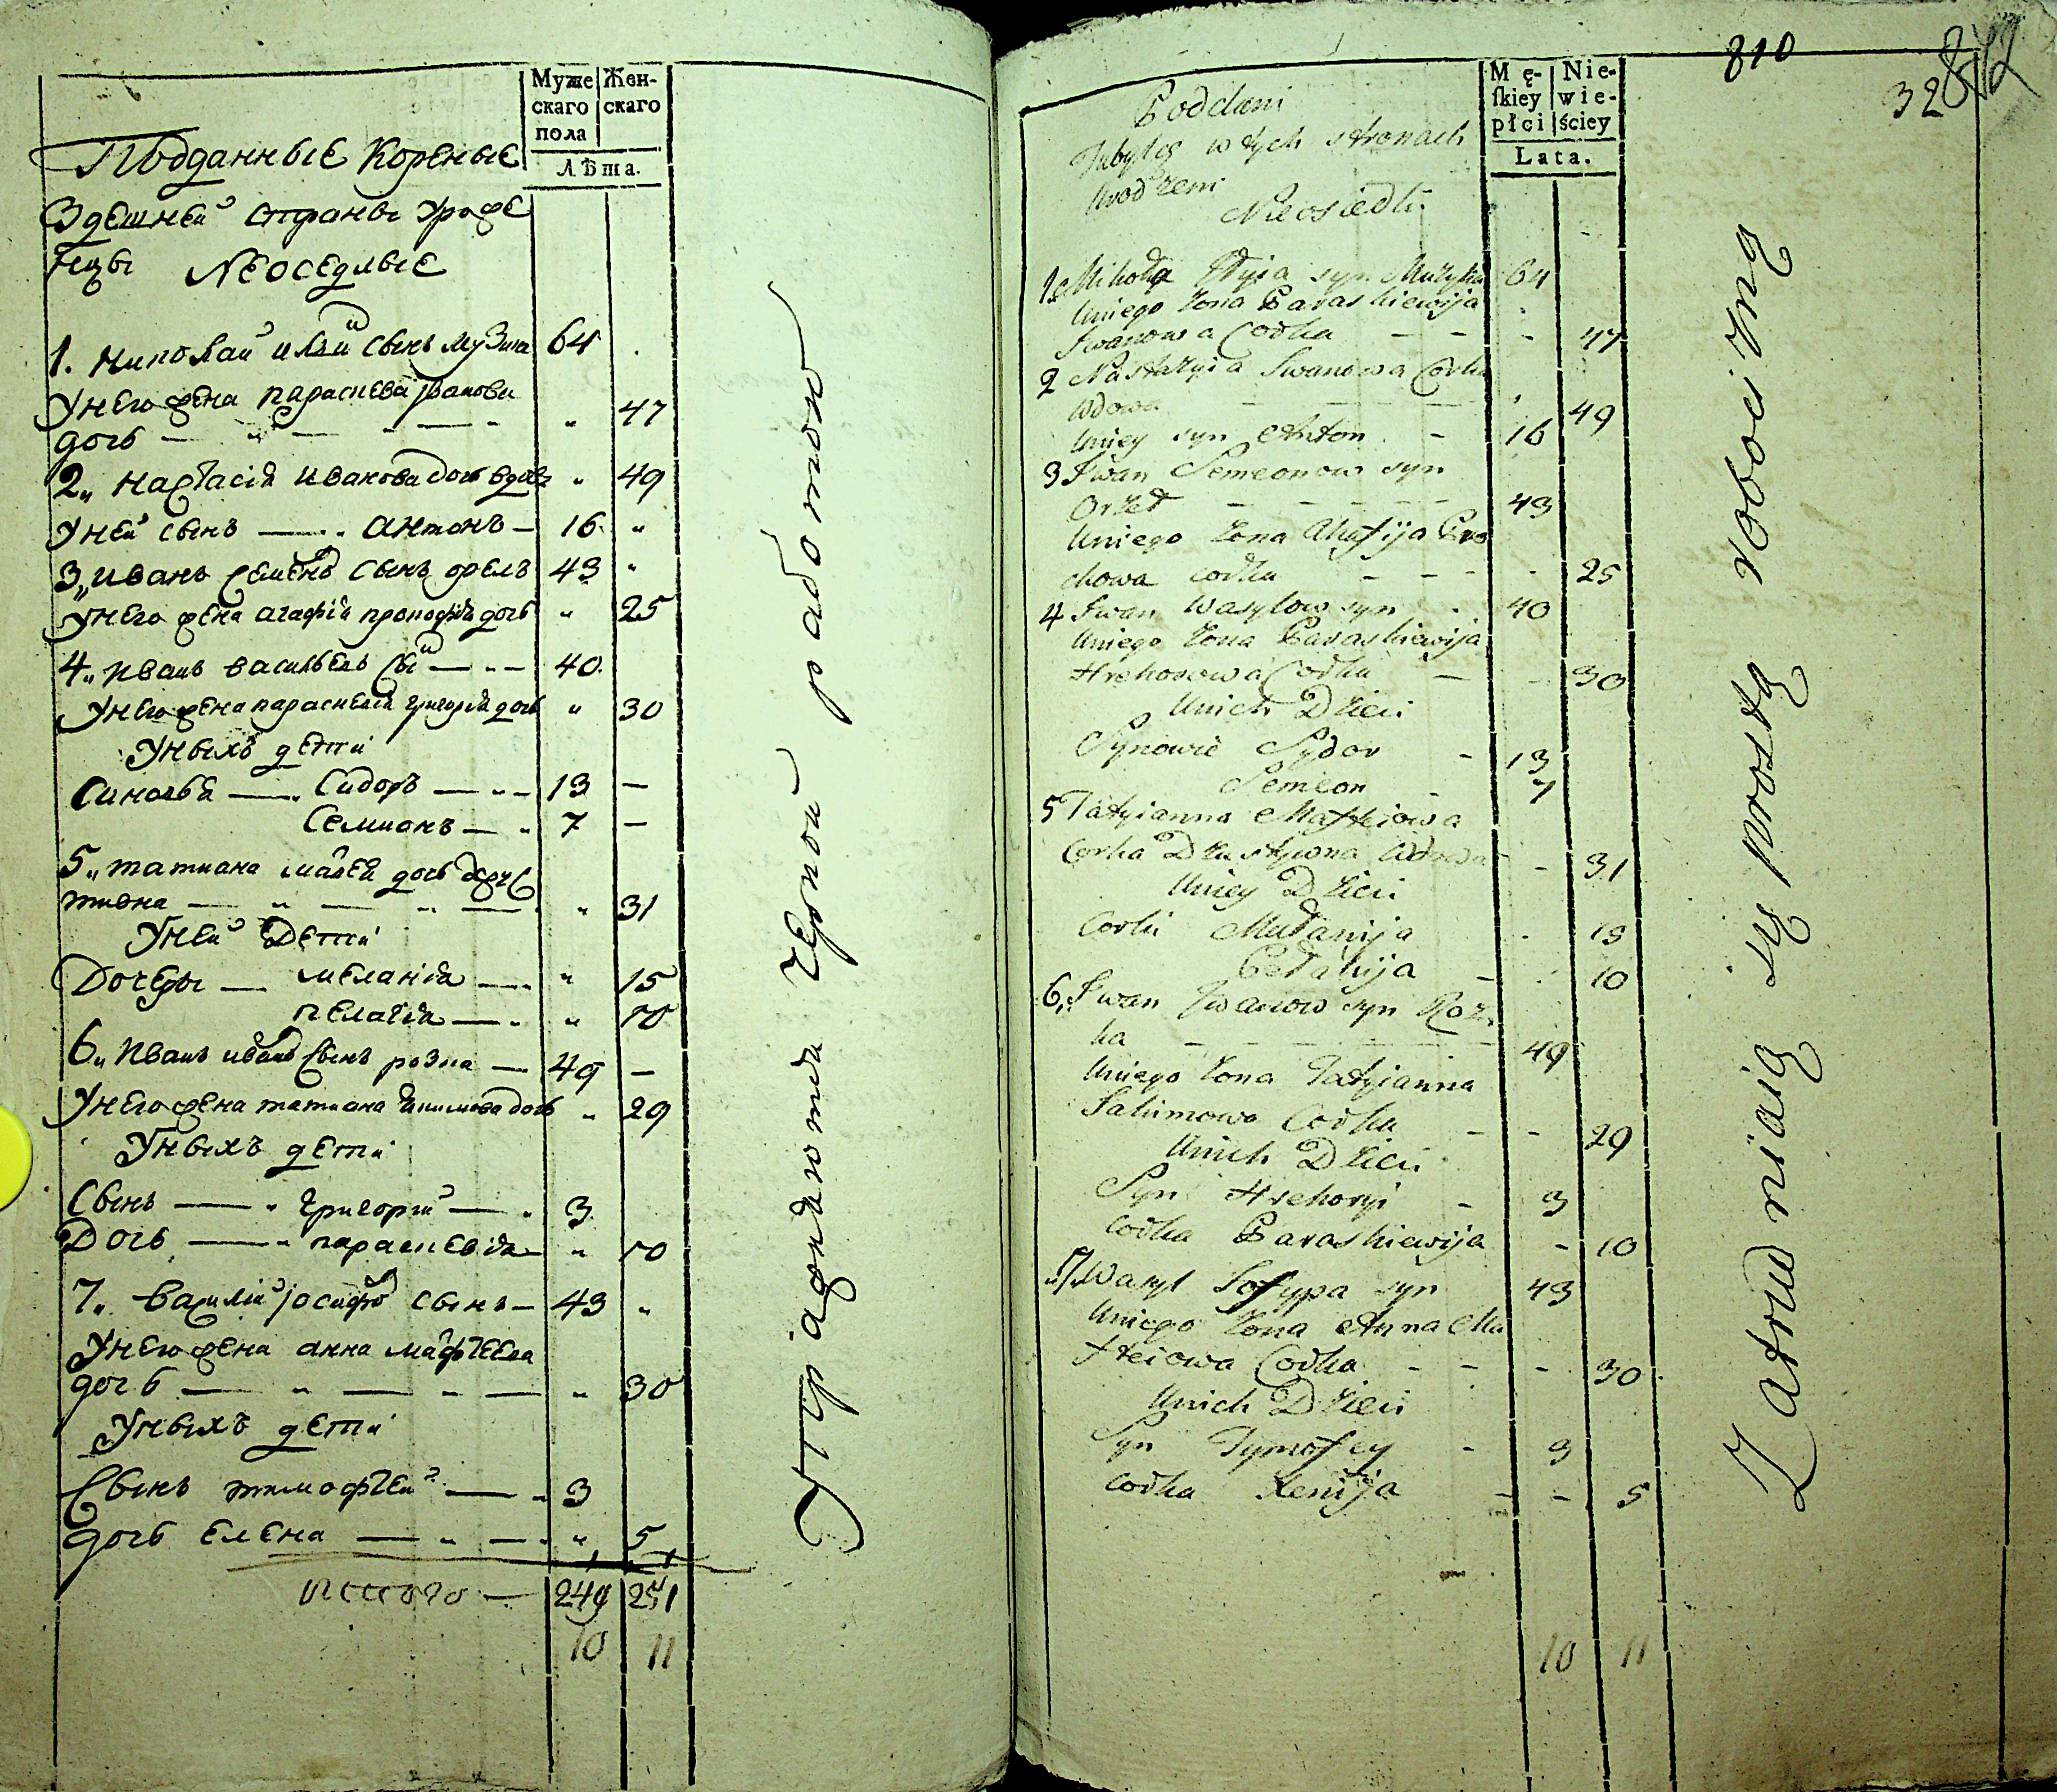 Муже
скаго
пола
Жен-
скаго
Лѣта.
Подданные кореные
Здешней страны уроже
нцы Неоседлые
1. николай илїи сынъ музика 64
Унего жена параскева иванова
дочь — „ — „ — „ 47
2„ настасія иванова дочь вдова „ 49
Уней сынъ — антонъ — 16 „
3„ иванъ семенъ сынъ орелъ 43 „
Унего жена агафія прокофія дочь „ 25
4„ иванъ васильевъ сы — „ — 40.
Унего жена параскевія григорія дочь „ 30
Уныхъ дети
Синовья — Сидоръ — „ — 13 —
Семионъ — „ 7 —
5„ татиана матѳей дочь
„ — „ — „ 31
Уней Дети
Дочеры — меланія — „ 15
пелагія — „ 10
6„ иванъ иванъ сынъ розка — 49 —
Унего жена татиана якимова дочь „ 29
Уныхъ дети
Сынъ — „ григорий — „ 3
Дочь — „ параскевія — „ 10
7„ василій іосифъ сынъ — 43 „
Унего жена анна матфеева
дочь — „ — „ — „ 30
Уныхъ дети
Сынъ тимофей — „ 3
дочь елена — „ — „ 5
итого — 249 251
10 11
Упражняются черною работою
810
32
M ę-
ſkiey
płci
Nie-
wie-
ściey
Lata.
Poddani
Zabytcy w tych stronach
Urodzeni
Nieosiedli
1. Mikoła Illyia syn Muzyka 64
Uniego Zona Paraskiewija
Iwanowa Corka — — - 47
2 Nastazyia Iwanowa Corka
Wdowa — — — 49
Uniey syn Anton - 16
3 Iwan Semeonow syn
Orzeł — — — 43
Uniego Zona Ahafija Pro
chowa corka — — - - 25
4 Iwan Wasylow syn . 40
Uniego Zona Paraskiewija
Hrehorowa Corka — - 30
Unich Dzieci
Synowie Sydor - 13
Semeon - 7
5 Tatyianna Matfeiowa
Corka Wdowa - 31
Uniey Dzieci
Corki Mełanija . 15
Pełahija - . 10
6. Iwan Iwanow syn Roz
ka — — — — 49
Uniego Zona Tatyianna
Jakimowa Corka — - 29
Unich Dzieci
Syn Hrehory - 3
corka Paraskiewija - 10
7. Wasyl Josypa syn 43
Uniego Zona Anna Ma
tfeiowa Corka - — - 30
Unich Dzieci
Syn Tymofey - 3
corka Xenija — - 5
10 11
Zatrudniaią się prostą robocizną